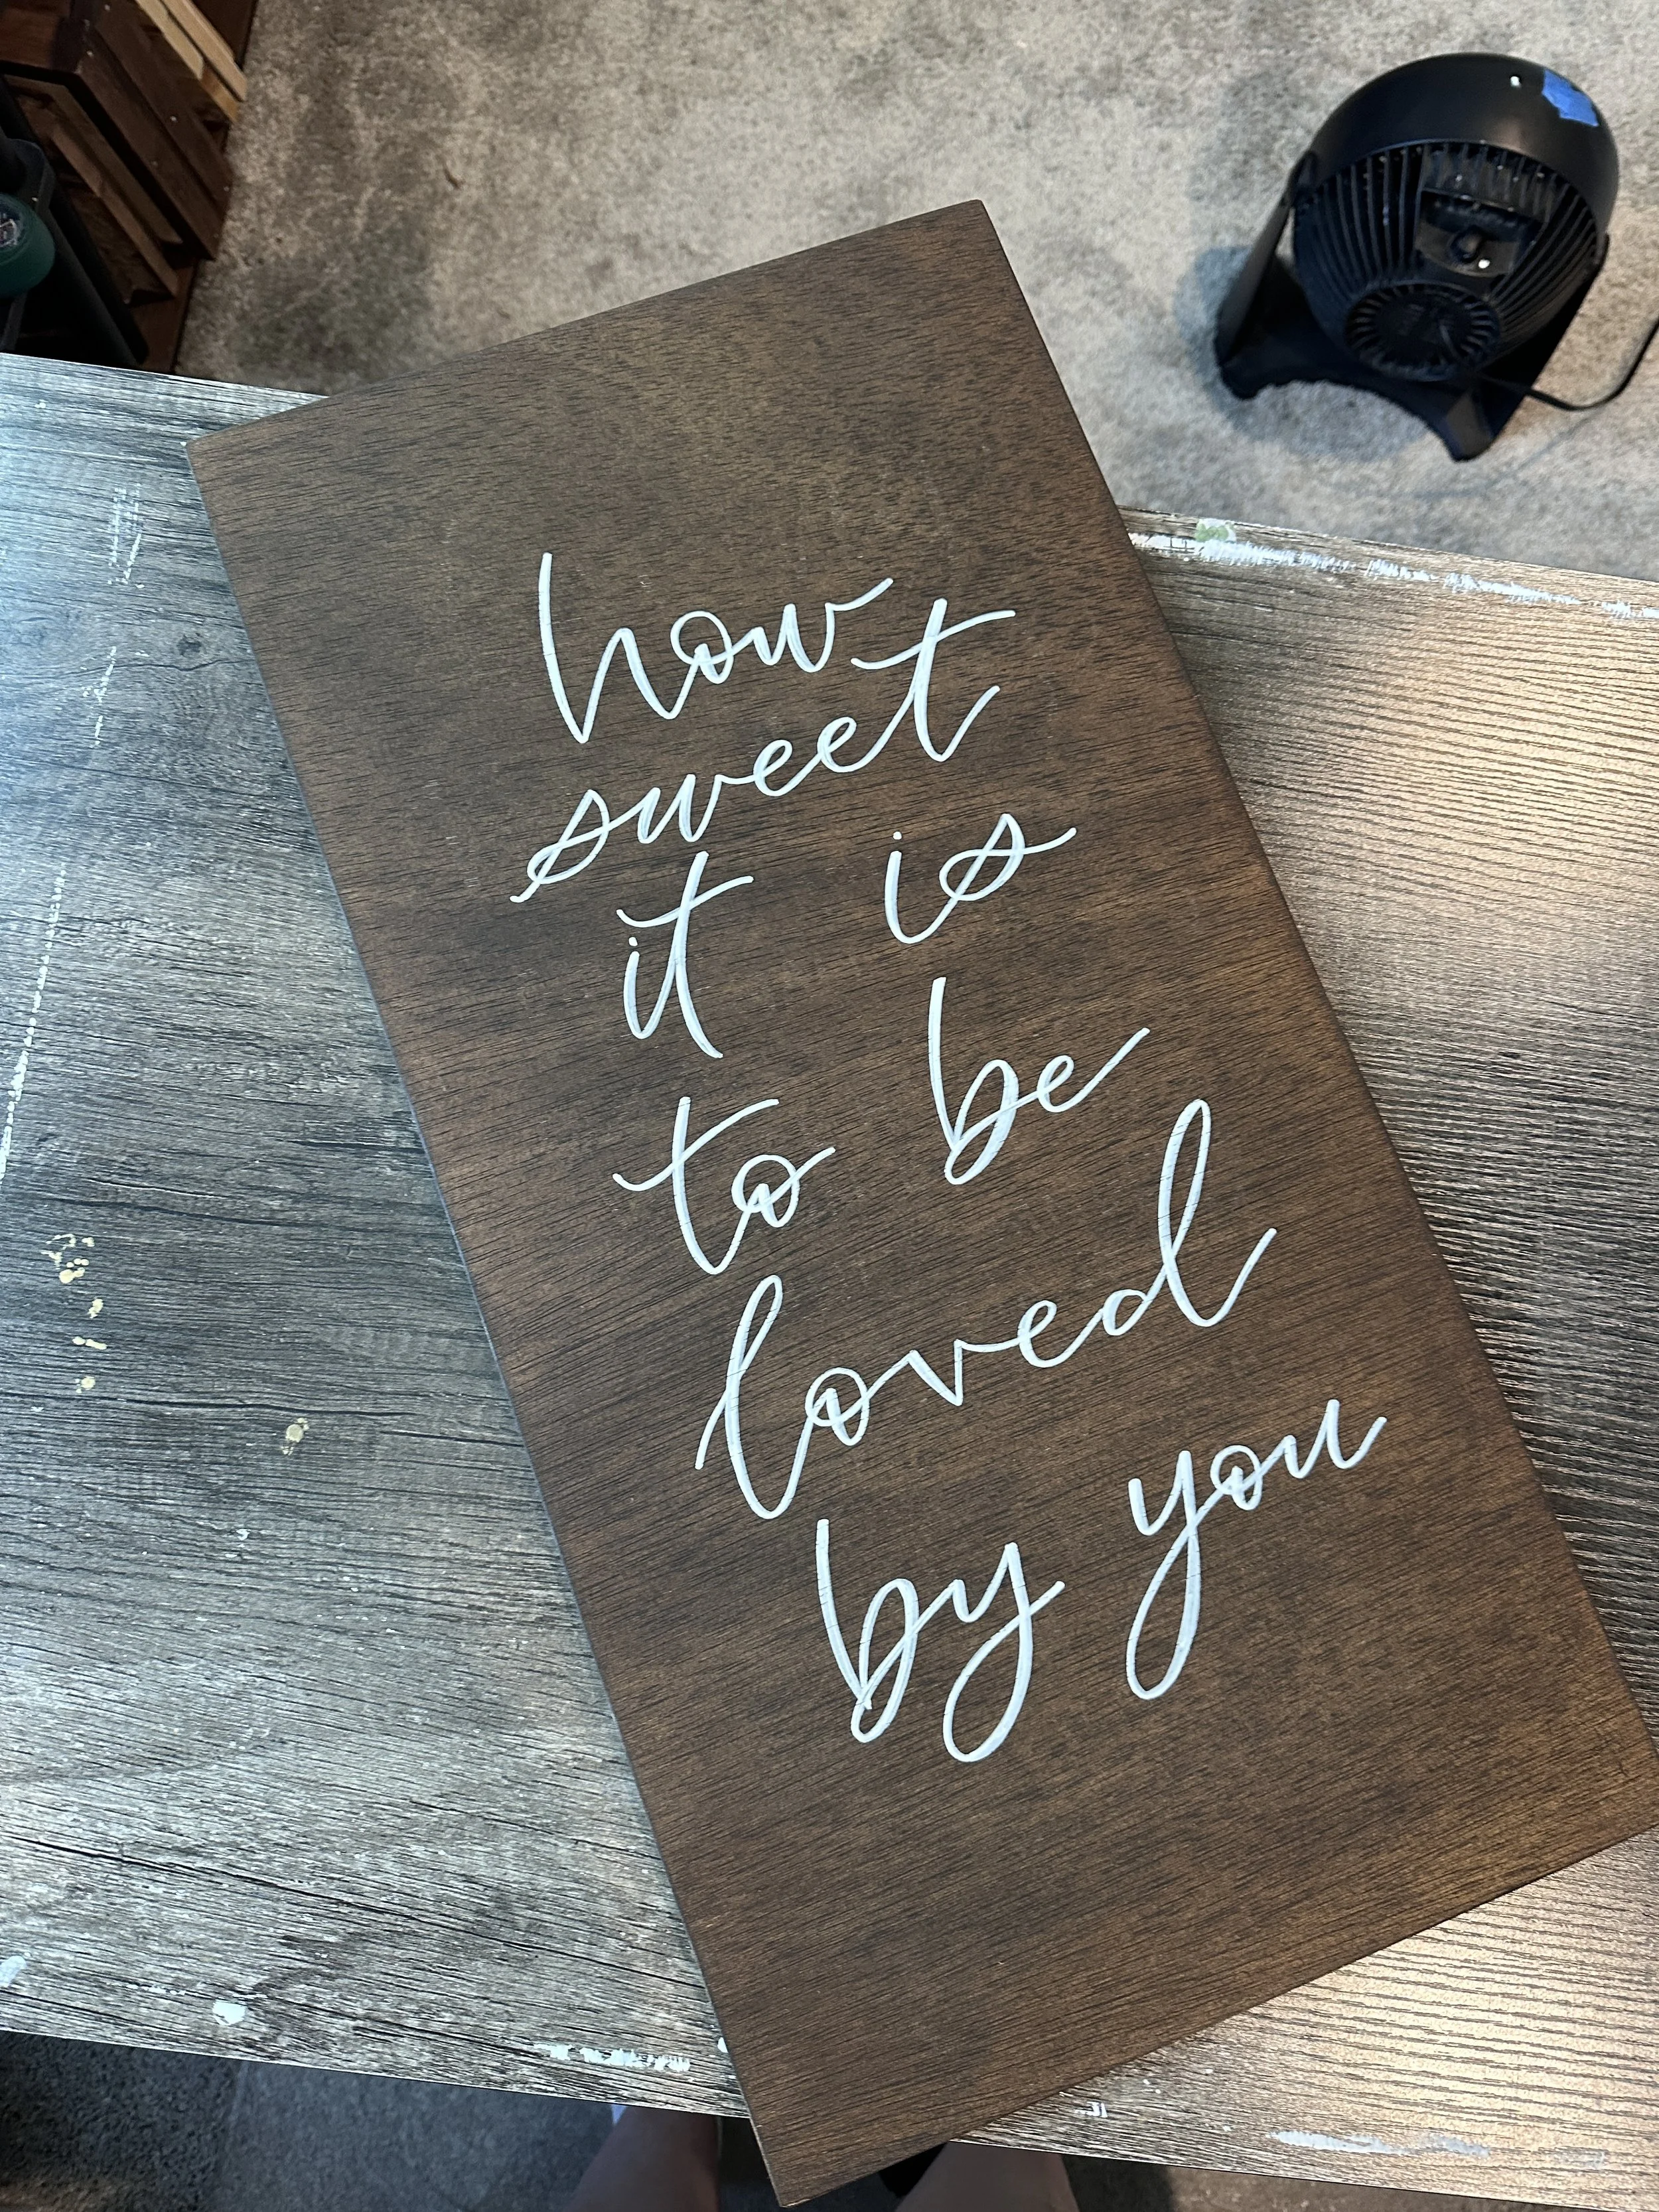 how
sweet
it is
to be
loved
by you